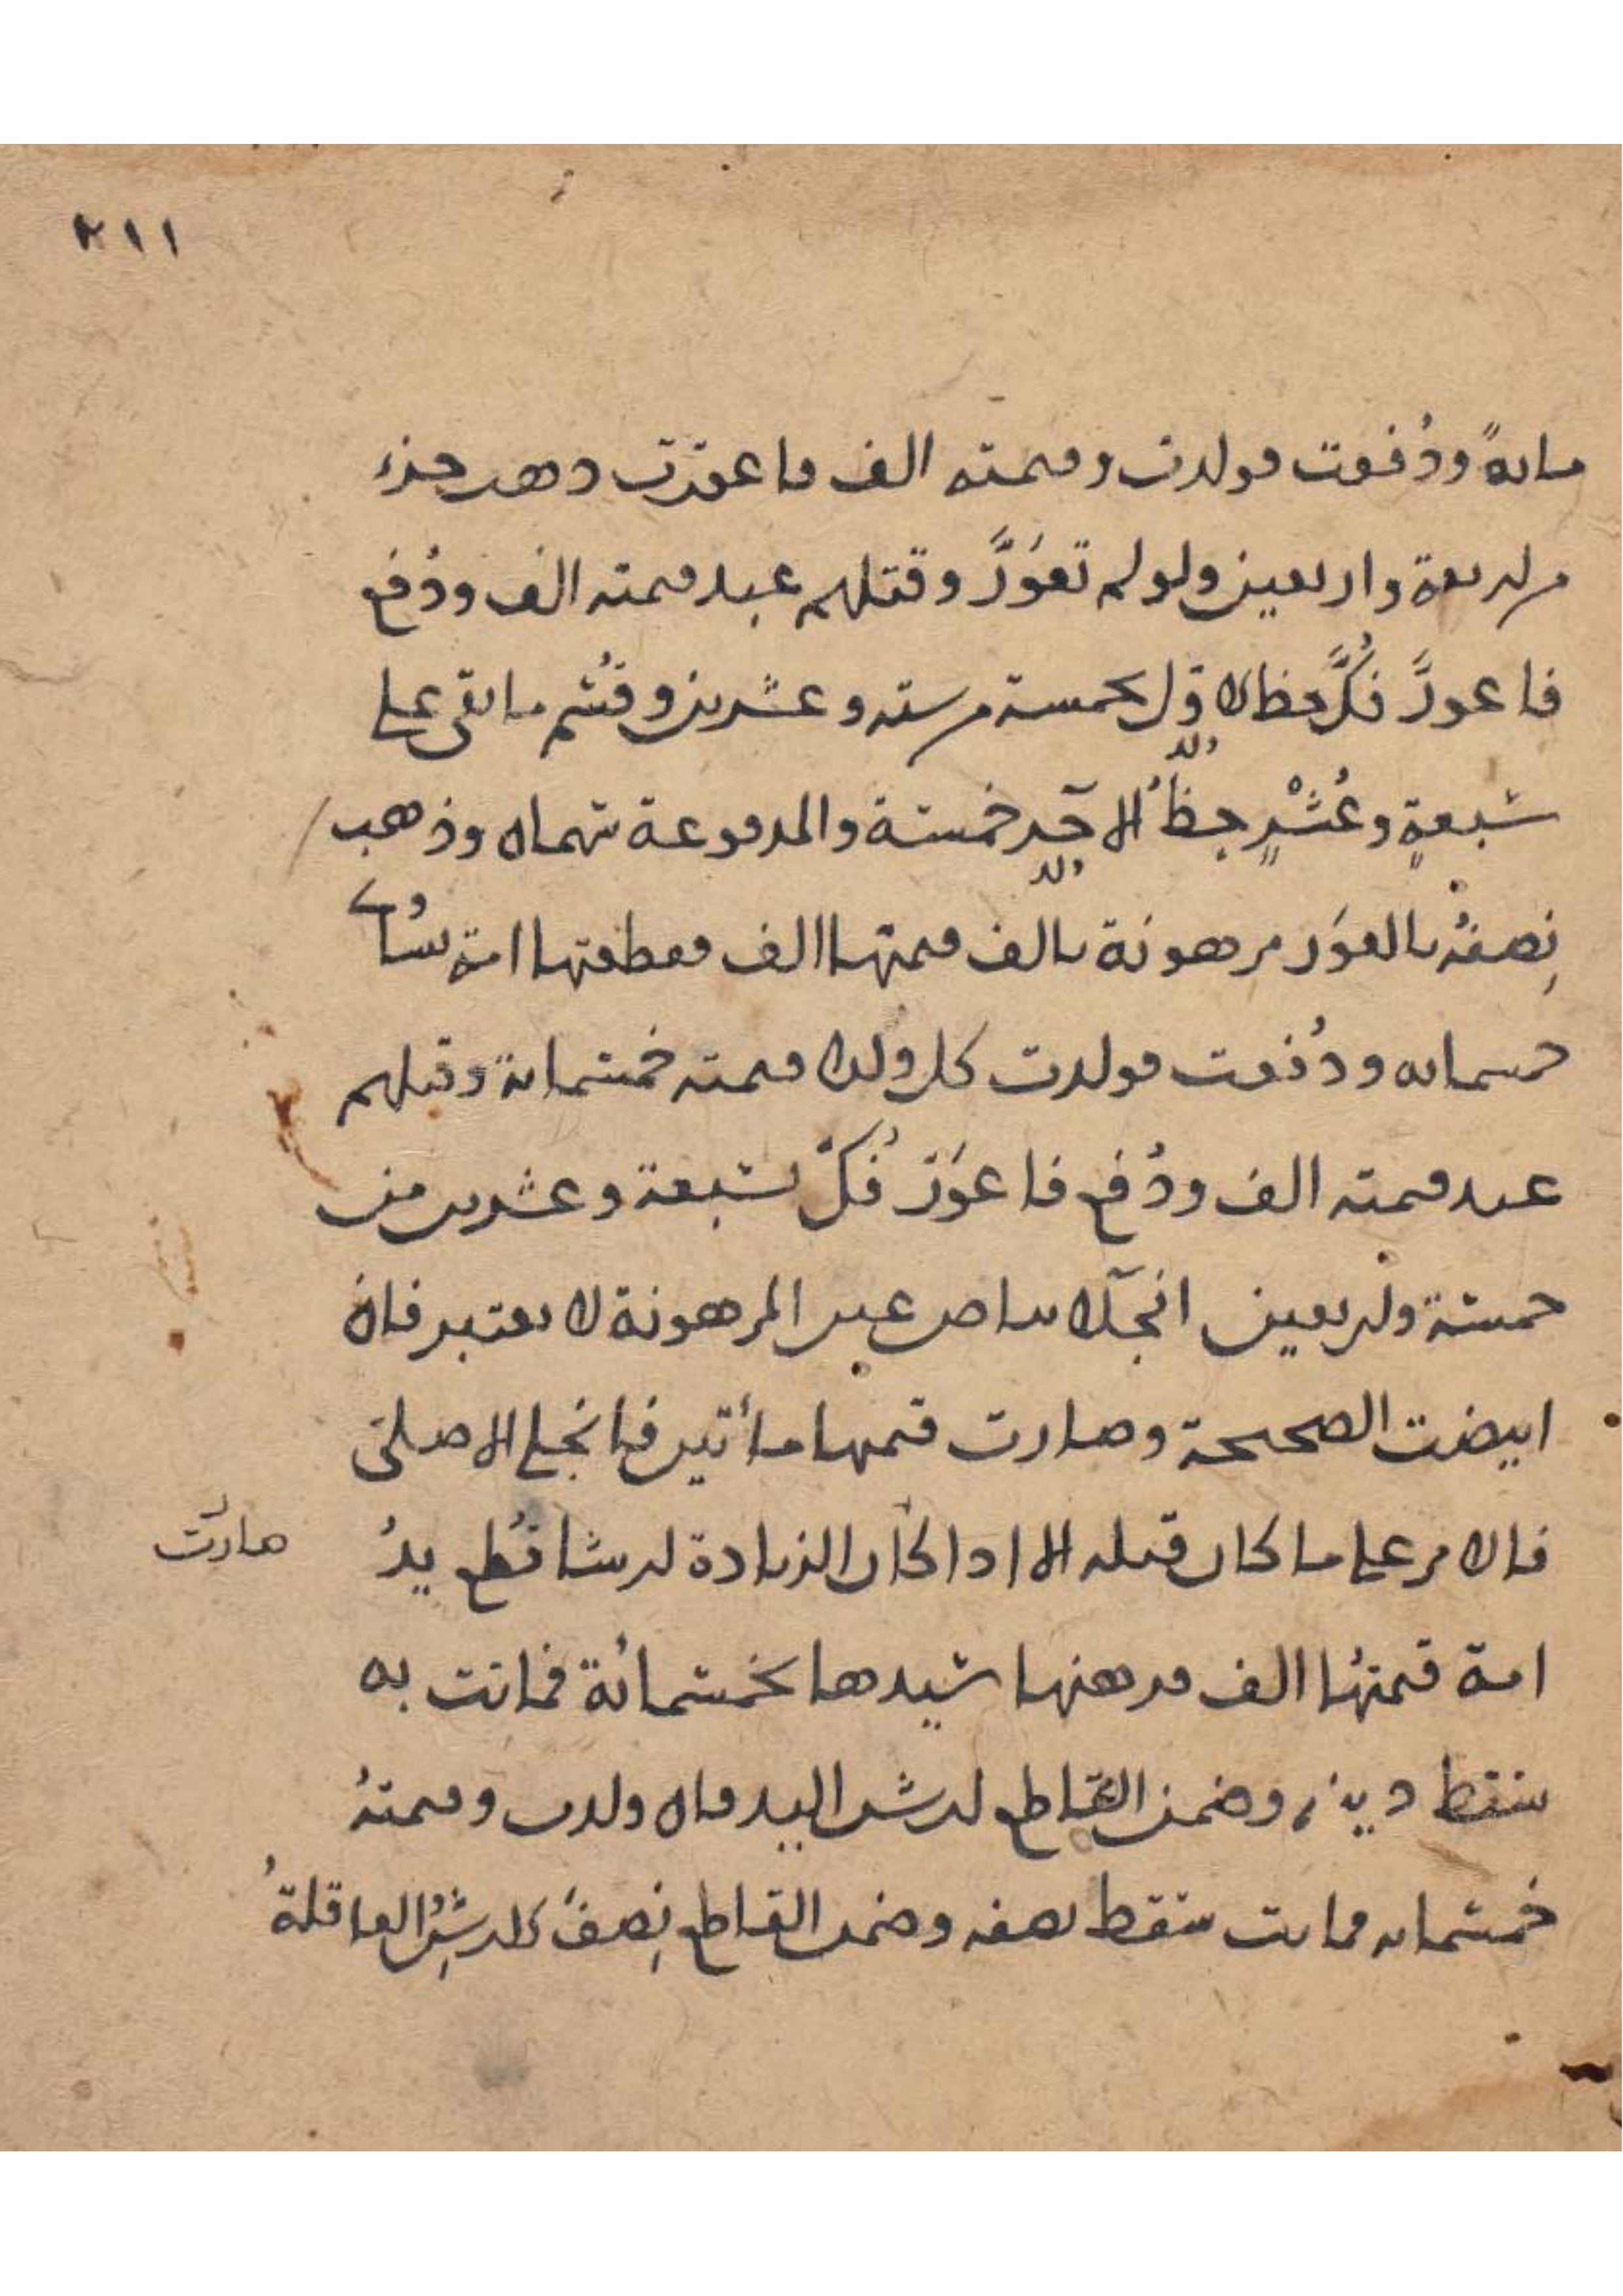 ٢١١
مائةً ودُفعت فولدت وقيمته الف فاعورّت ذهب جزء
من اربعة واربعين ولو لم تعوَرَّ وقتلهم عبد قيمته الف ودُفع
فاعورَّ فُكَّ حظ الاوّل بخمسة من ستة وعشرين وقُسم ما بقى على
سبعةٍ وعُشْرٍ حظُّ الآخِر خمسة والمدفوعة سهمان وذهب
ولد
ولد
نِصفهُ بالعوَر مرهونة بالف قيمتها الف فقطعتها امة تسُاوى
خمسمائة ودُفعت فولدت كل ولدا قيمته خمسمائة وقتلهم
عبد قيمته الف ودُفع فاعوَرَّ فُكّ بسبعة وعشرين من
خمسة واربعين انجلاء بياض عين المرهونة لا يعتبر فان
ابيضت الصحيحة وصارت قيمتها مأتين فانجلى الاصلى
فالامر على ما كان قبله الا اذا كان الزيادة لارش قُطع يدُ
صارت
امة قيمتهُا الف فرهنها سيدها بخمسمائة فماتت به
سقط دينه وضمن القاطع ارش اليد فان ولدت وقيمتهُ
خمسمائة فماتت سقط نصفه وضمن القاطع نِصفَ الارشِ العاقلةُ